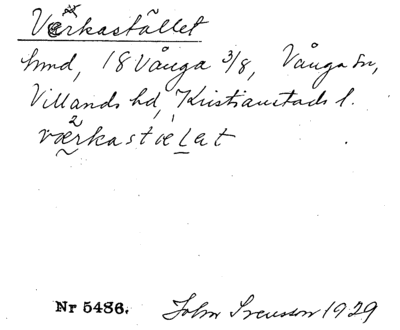 Værkastället
hmd, 18 Vånga 3/8, Vånga sn,
Villands hd, Kristianstads l.
værkastælet
Nr 5486. John Svensson 1929